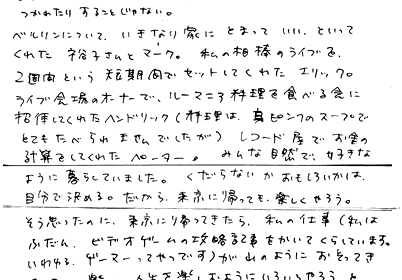 つかれたり することじゃない。
ベルリンについて、いきなり家に とまって いい、といって
くれた 裕子さんと マーク。 私の相棒のライブを、
2週間という 短期間で セットしてくれた エリック。
ライブ会場のオーナーで、ルーマニア料理を食べる会に
招待してくれたヘンドリック(料理は、真ピンクのスープで
とてもたべられませんでしたが) レコード屋で お金の
計算をしてくれた ペーター。 みんな 自然で、好きな
ように 暮らしていました。 くだらないか おもしろいかは、
自分で決める。だから、東京に帰っても、楽しくやろう。
そう思ったのに、東京に帰ってきたら、私の仕事(私は
ふだん、ビデオゲームの攻略記事をかいてくらしています。
いわゆる、ゲーマーってやつです)がのように おそってき